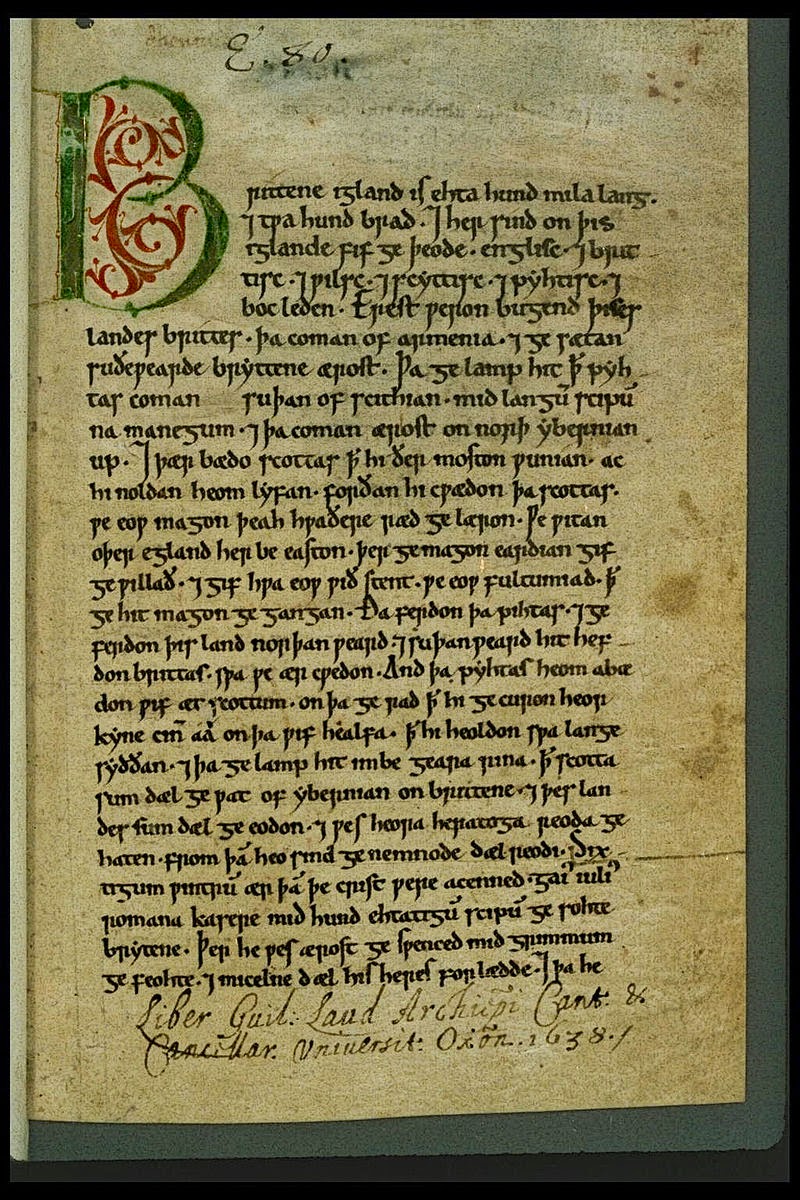 E. 80.
Brittene igland is ehta hund mila lang.
⁊ tƿa hund brad. ⁊ her sind on þis
iglande fif ge þeode. englisc. ⁊ brit
tisc. ⁊ ƿilsc. ⁊ scyttisc. ⁊ pyhtisc. ⁊
boc leden. Erest ƿeron bugend þises
landes brittes. þa coman of armenia. ⁊ ge sætan
suðeƿearde bryttene ærost. Þa ge lamp hit ꝥ pyh
tas coman suþan of scithian. mid langū scipū
na manegum. ⁊ þa coman ærost on norþ ybernian
up. ⁊ þær bædo scottas ꝥ hi ðer moston ƿunian. ac
hi noldan heom lyfan. forðan hi cƿædon þa scottas.
ƿe eoƿ magon þeah hƿaðere ræd ge læron. Ƿe ƿitan
oþer egland her be easton. þer ge magon eardian gif
ge ƿillað. ⁊ gif hƿa eoƿ ƿið stent. ƿe eoƿ fultumiad. ꝥ
ge hit magon ge gangan. Ða ferdon þa pihtas. ⁊ ge
ferdon þis land norþan ƿeard. ⁊ suþan ƿeard hit hef
don brittas. sƿa ƿe ær cƿedon. And þa pyhtas heom abæ
don ƿif æt scottum. on þa ge rad ꝥ hi ge curon heor
kyne cin̄ aá on þa ƿif healfa. ꝥ hi heoldon sƿa lange
syððan. ⁊ þa ge lamp hit imbe geara rina. ꝥ scotta
sum dæl ge ƿat of ybernian on brittene. ⁊ þes lan
des sum dæl ge eodon. ⁊ ƿes heora heratoga reoda ge
haten. from þā heo sind ge nemnode dæl reodi. Six
tigum ƿintrū ær þā þe crist ƿere acenned. gaī iuliꝰ
romana kasere mid hund ehtatigū scipū ge sohte
brytene. Þer he ƿes ærost ge sƿenced mid grimmum
ge feohte. ⁊ micelne dæl his heres forlædde. ⁊ þa he
Liber Guil: Laud Archiep̄i Cant. &
Cancellar. Vniversit: Oxōn. 1638.